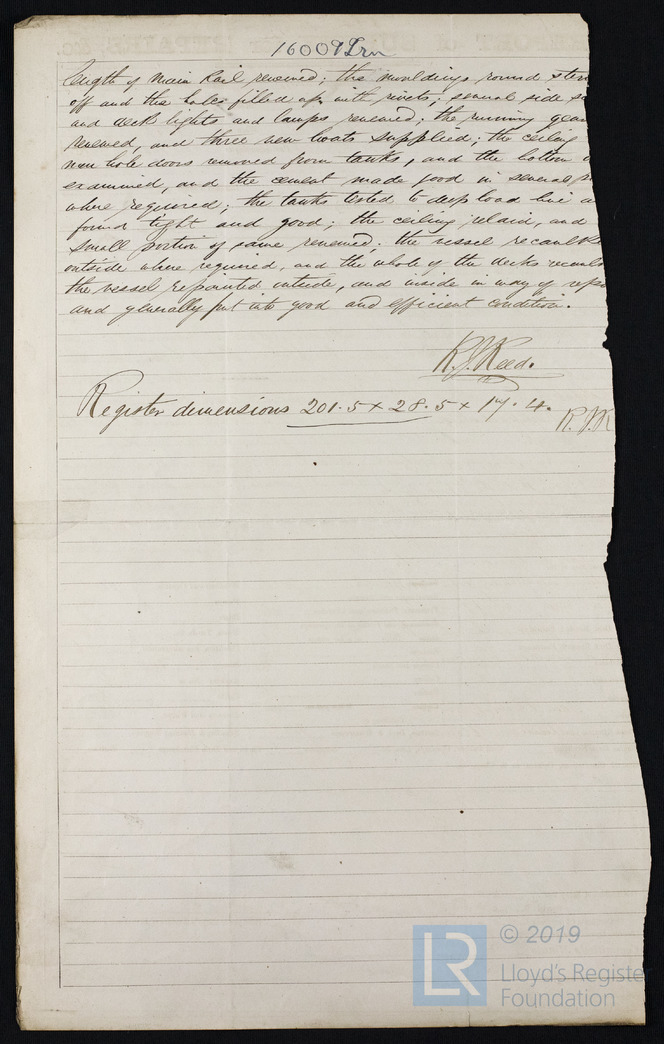 16009 Irn
length of Main Rail renewed; the mouldings round stern
off and the holes filled up with rivets; several side s
and deck lights and lamps renewed; the running gear
renewed, and three new boats supplied; the ceiling
man hole doors removed from tanks, and the bottom
examined, and the cement made good in several p
where required; the tanks tested to deep load line a
found tight and good; the ceiling relaid, and
small portion of same renewed; the vessel recaulke
outside where required, and the whole of the decks recaulk
the vessel repainted outside, and inside in way of repa
and generally put into good and efficient condition.
R.J. Reed.
Register dimensions 201.5 x 28.5 x 17.4.
R.J.R
LR
© 2019
Lloyd's Register
Foundation